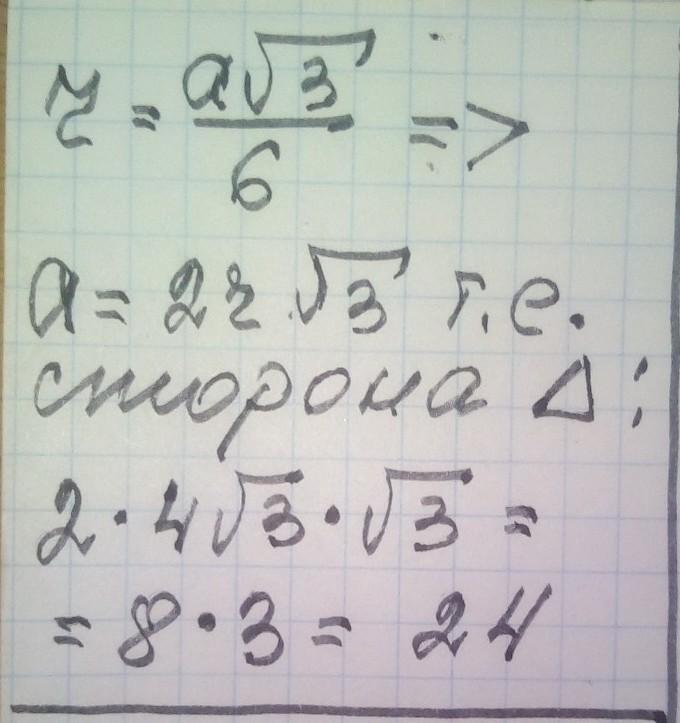 r = a√3/6 =>
a = 2r √3 т.е.
сторона Δ:
2 · 4√3 · √3 =
= 8 · 3 = 24